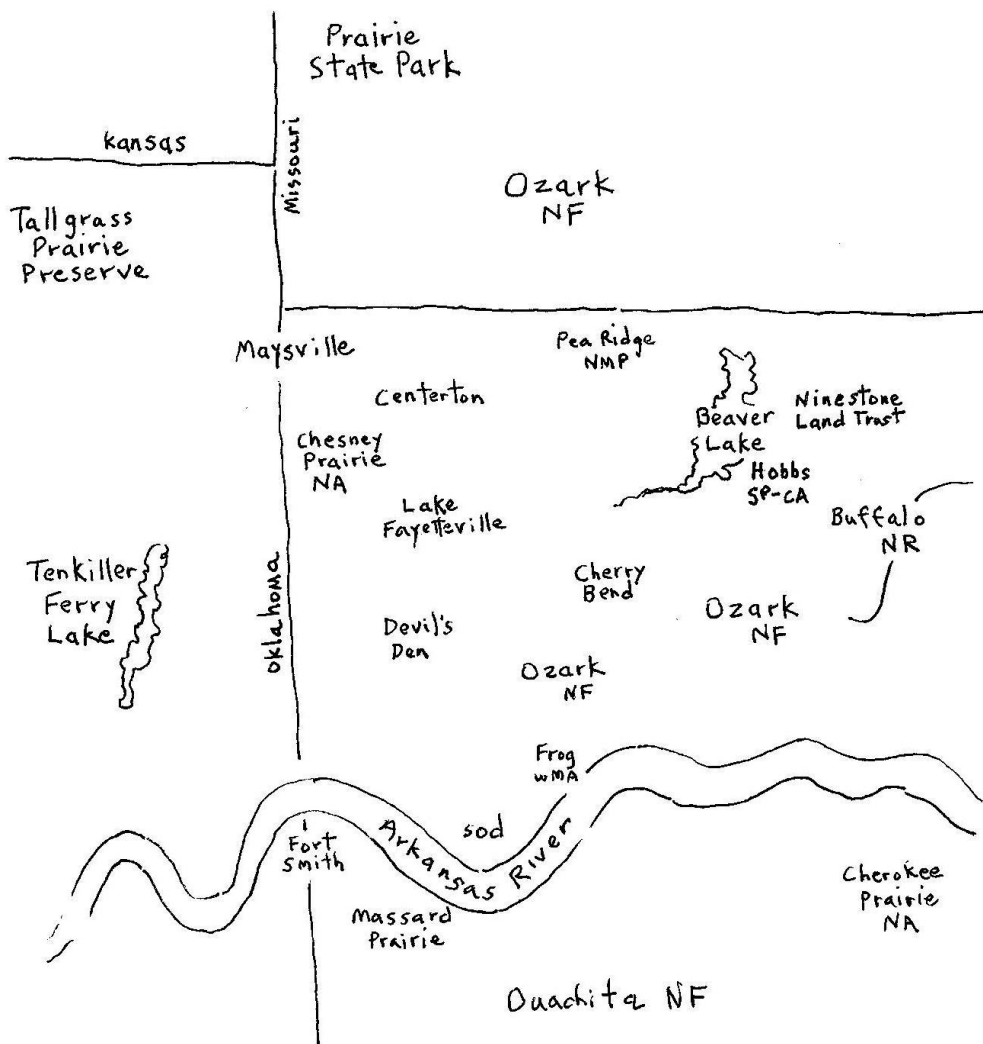 Prairie
State Park
Kansas
Missouri
Ozark
NF
Tallgrass
Prairie
Preserve
Maysville
Pea Ridge
NMP
Centerton
Beaver
Lake
Ninestone
Land Trust
Chesney
Prairie
NA
Hobbs
SP-CA
Lake
Fayetteville
Buffalo
NR
Tenkiller
Ferry
Lake
Oklahoma
Cherry
Bend
Ozark
NF
Devil's
Den
Ozark
NF
Frog
WMA
sod
Arkansas River
Fort
Smith
Massard
Prairie
Cherokee
Prairie
NA
Ouachita NF